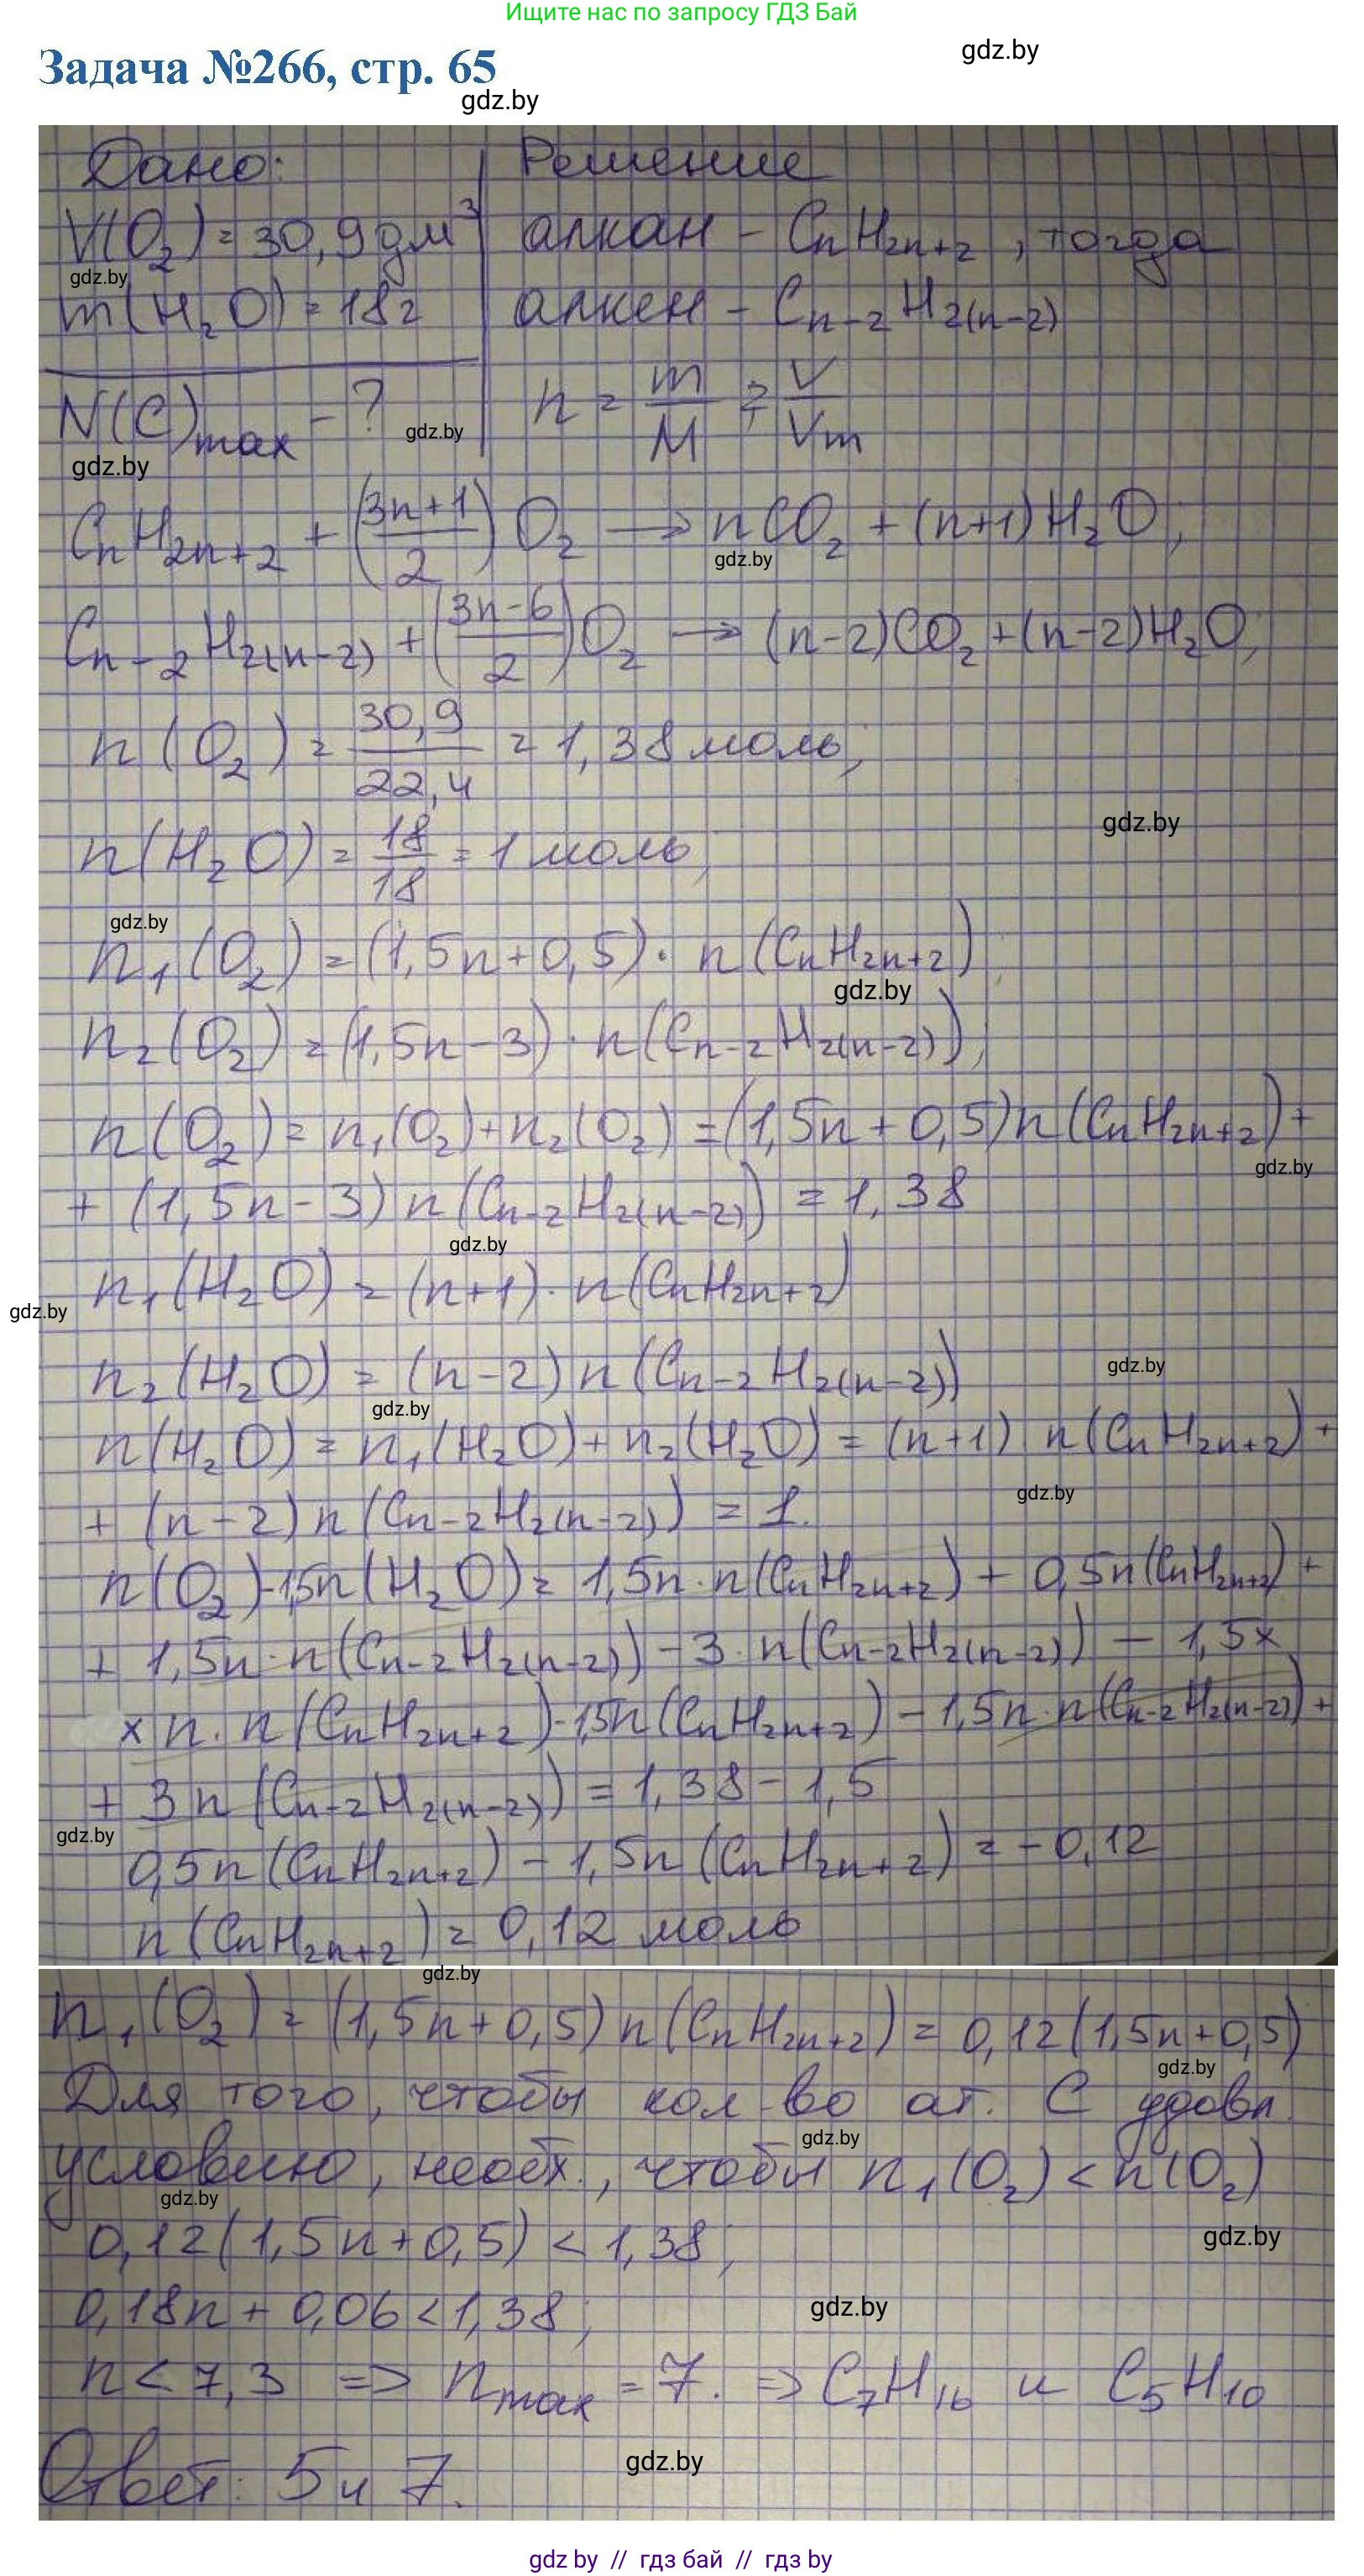 Ищите нас по запросу ГДЗ Бай
Задача №266, стр. 65
gdz.by
gdz.by
Дано:
Решение
V(O₂) = 30,9 дм³
алкан - CₙH₂ₙ₊₂, тогда
gdz.by
m(H₂O) = 18г
алкен - Cₙ₋₂H₂₍ₙ₋₂₎
N(C)max - ?
n = m/M ; = V/Vm
gdz.by
gdz.by
CₙH₂ₙ₊₂ + ((3n+1)/2) O₂ → nCO₂ + (n+1)H₂O;
gdz.by
Cₙ₋₂H₂₍ₙ₋₂₎ + ((3n-6)/2) O₂ → (n-2)CO₂ + (n-2)H₂O;
n(O₂) = 30,9/22,4 = 1,38 моль;
gdz.by
n(H₂O) = 18/18 = 1 моль;
gdz.by
n₁(O₂) = (1,5n+0,5) · n(CₙH₂ₙ₊₂);
gdz.by
n₂(O₂) = (1,5n-3) · n(Cₙ₋₂H₂₍ₙ₋₂₎);
n(O₂) = n₁(O₂) + n₂(O₂) = (1,5n+0,5)n(CₙH₂ₙ₊₂) +
gdz.by
+ (1,5n-3) n(Cₙ₋₂H₂₍ₙ₋₂₎) = 1,38
gdz.by
n₁(H₂O) = (n+1) · n(CₙH₂ₙ₊₂)
gdz.by
n₂(H₂O) = (n-2) n(Cₙ₋₂H₂₍ₙ₋₂₎)
gdz.by
gdz.by
n(H₂O) = n₁(H₂O) + n₂(H₂O) = (n+1) n(CₙH₂ₙ₊₂) +
gdz.by
+ (n-2) n(Cₙ₋₂H₂₍ₙ₋₂₎) = 1.
n(O₂)-1,5n(H₂O) = 1,5n · n(CₙH₂ₙ₊₂) + 0,5n(CₙH₂ₙ₊₂) +
+ 1,5n · n(Cₙ₋₂H₂₍ₙ₋₂₎) - 3 · n(Cₙ₋₂H₂₍ₙ₋₂₎) - 1,5x
x n · n(CₙH₂ₙ₊₂)-1,5n(CₙH₂ₙ₊₂) - 1,5n · n(Cₙ₋₂H₂₍ₙ₋₂₎) +
+ 3n(Cₙ₋₂H₂₍ₙ₋₂₎) = 1,38 - 1,5
gdz.by
0,5n(CₙH₂ₙ₊₂) - 1,5n(CₙH₂ₙ₊₂) = -0,12
n(CₙH₂ₙ₊₂) = 0,12 моль
gdz.by
n₁(O₂) = (1,5n+0,5) n(CₙH₂ₙ₊₂) = 0,12(1,5n+0,5)
gdz.by
Для того, чтобы кол-во ат. С удовл.
gdz.by
условию, необх., чтобы n₁(O₂) < n(O₂)
gdz.by
0,12(1,5n+0,5) < 1,38;
gdz.by
0,18n + 0,06 < 1,38;
gdz.by
n < 7,3 => nmax = 7. => C₇H₁₆ и C₅H₁₀
gdz.by
Ответ: 5 и 7.
gdz.by // гдз бай // гдз by